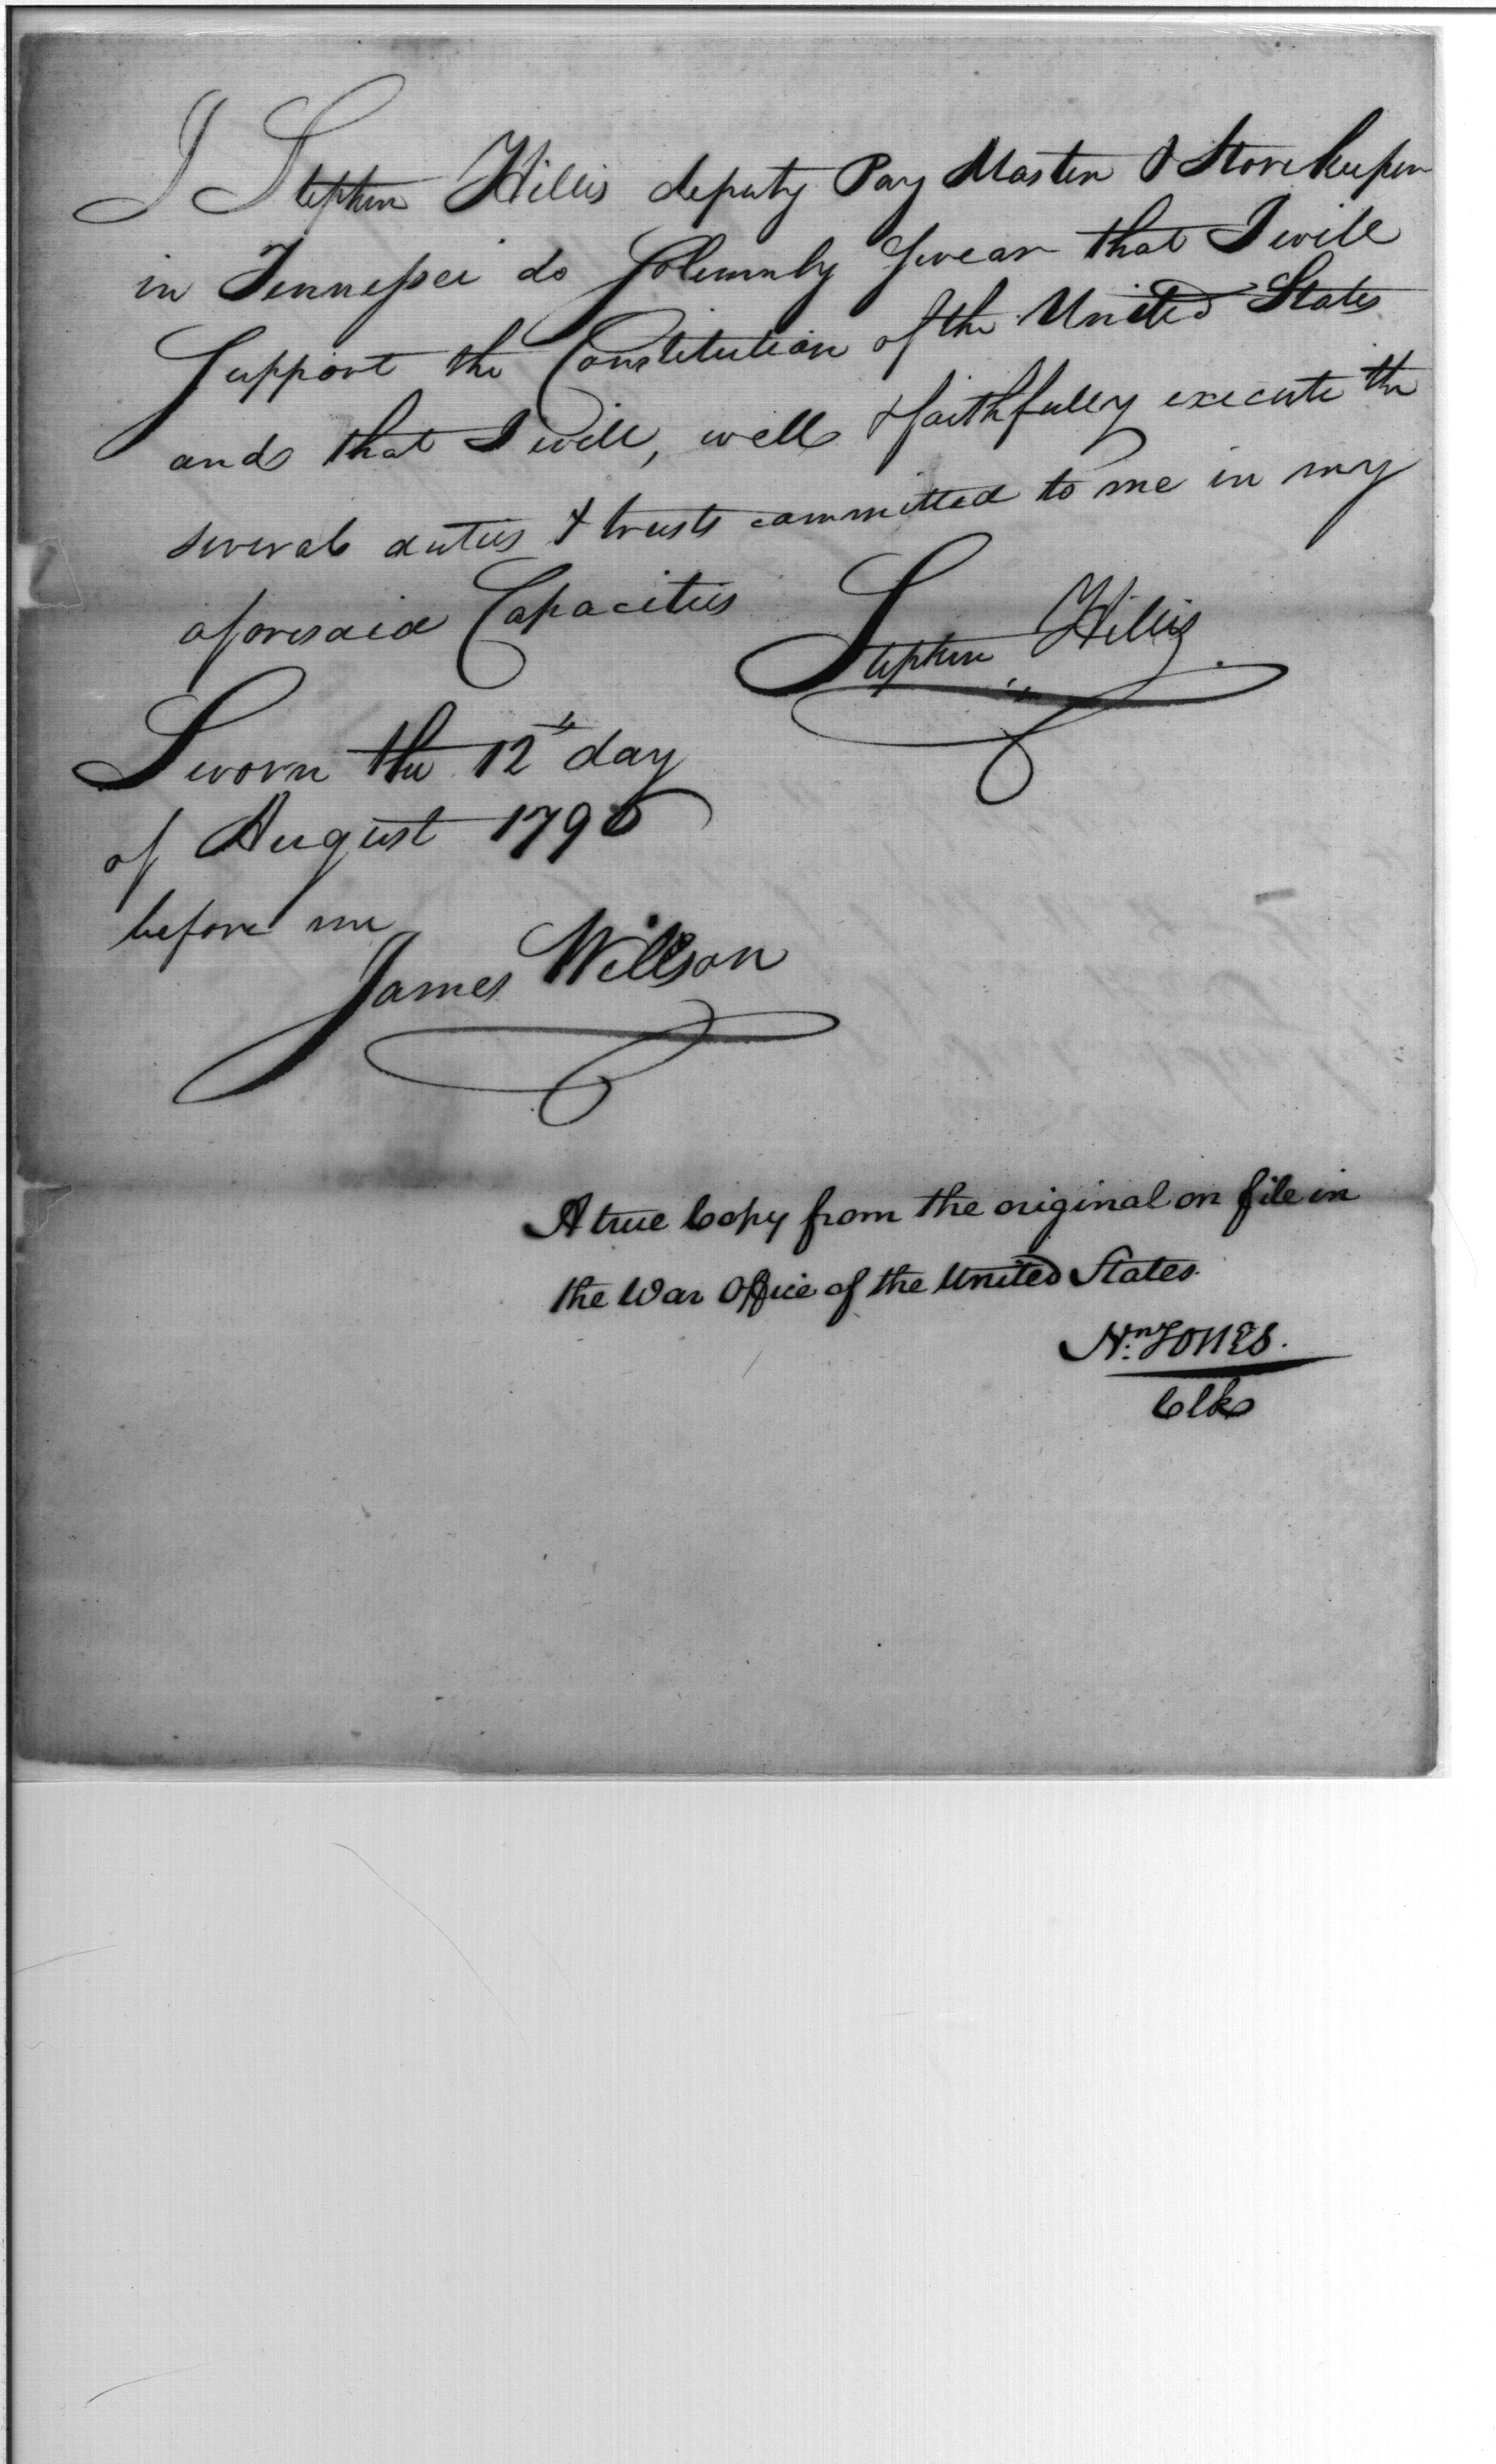 I Stephen Hillis deputy Pay Master & Storekeeper
in Tennessee do Solemnly Swear that I will
Support the Constitution of the United States
and that I will, well & faithfully execute the
several duties & trusts committed to me in my
aforesaid Capacities
Stephen Hillis
Sworn the 12th day
of August 1796
before me
James Willson
A true Copy from the original on file in
the War Office of the United States.
Nn. Jones.
Clk